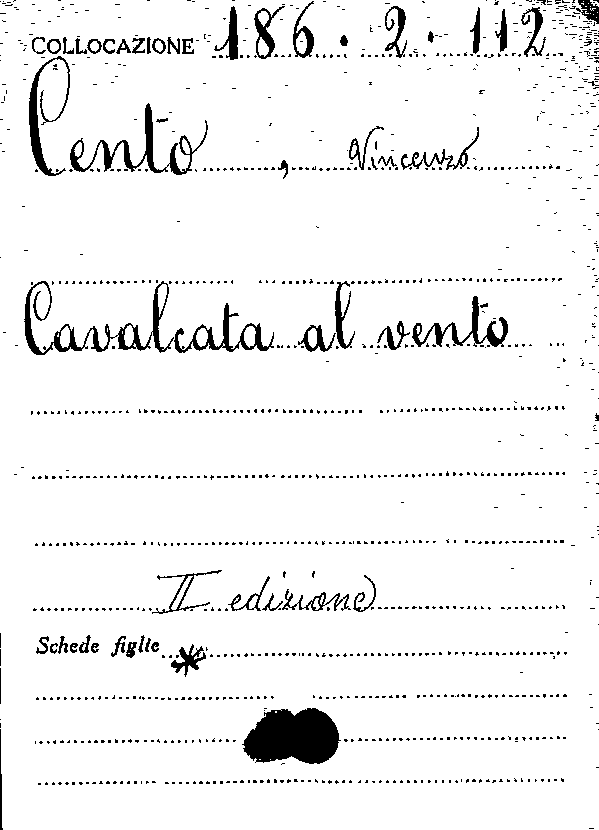 COLLOCAZIONE 186.2.112
Cento, Vincenzo
Cavalcata al vento
II edizione
Schede figlie *